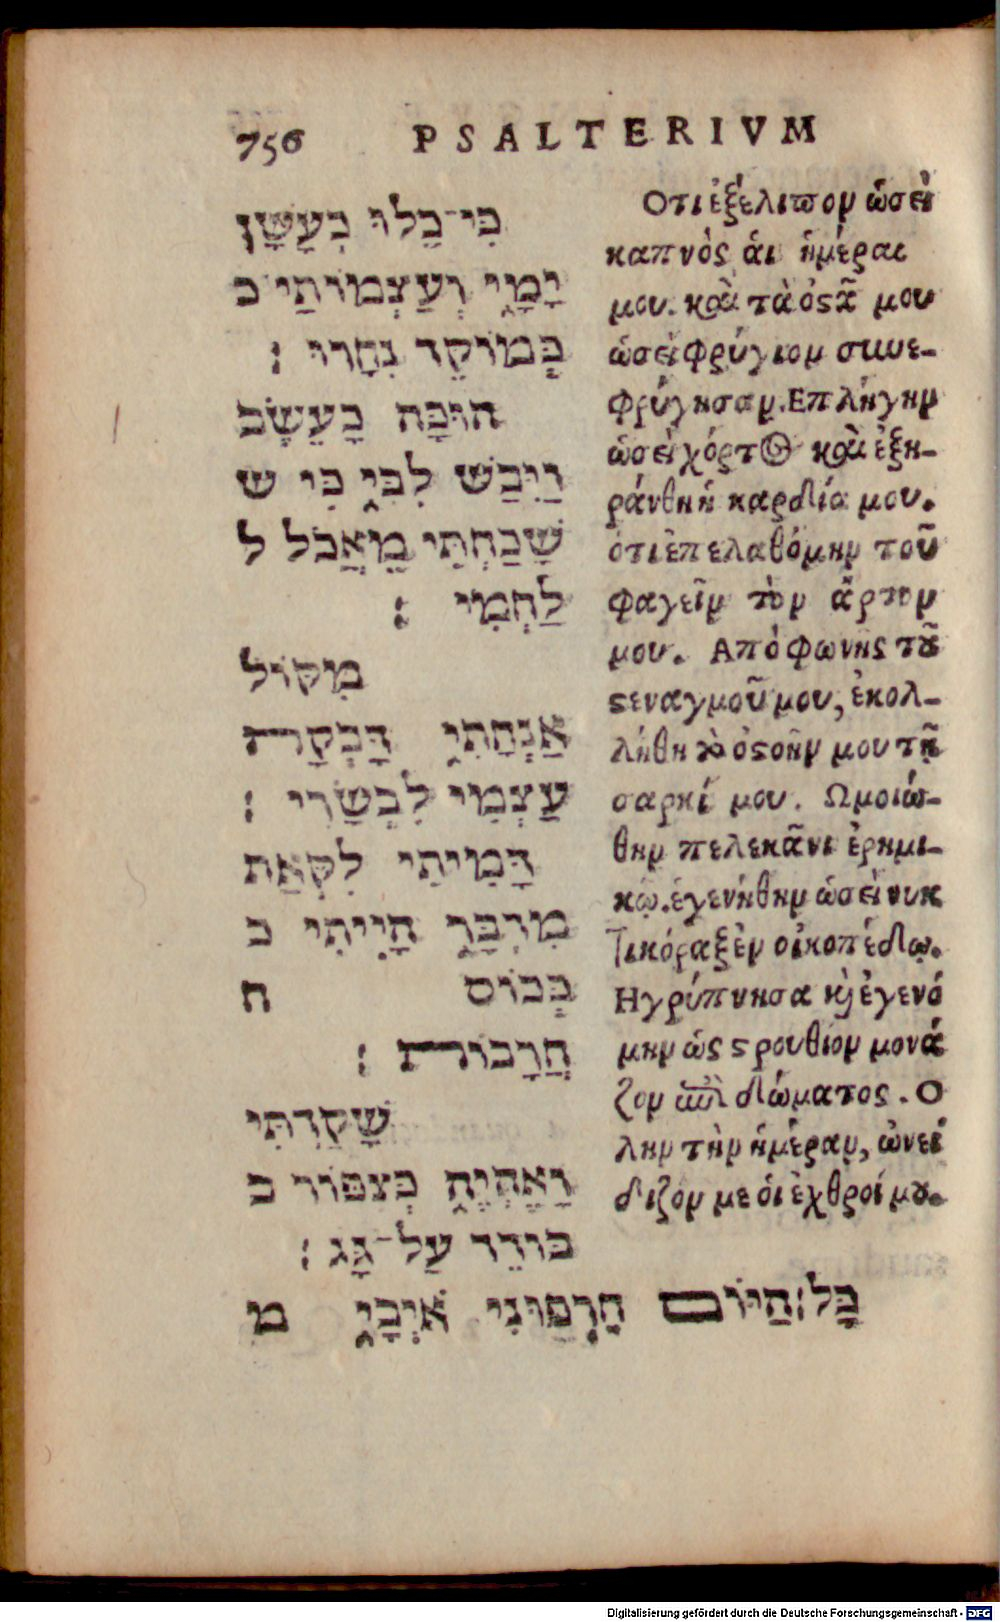 756 PSALTERIVM
כִּי־כָלוּ בְעָשָׁן
יָמָי וְעַצְמוֹתַי כ
כְּמוֹקֵד נִחָרוּ :
הוּכָּה כָעֵשֶׂב
וַיִּבַשׁ לִבִּי כִּי ש
שָׁכַחְתִּי מֵאֲכֹל ל
לַחְמִי :
מִקּוֹל
אַנְחָתִי דָּבְקָה
עַצְמִי לִבְשָׂרִי :
דָּמִיתִי לִקְאַת
מִדְבָּר הָיִיתִי כ
כְּכוֹס ח
חֳרָבוֹת :
שָׁקַדְתִּי
וָאֶהְיֶה כְּצִפּוֹר ב
בּוֹדֵד עַל־גָּג :
כָּל הַיּוֹם חֵרְפוּנִי אֹיְבָי מ
Οτι ἐξέλιπον ὡσεὶ
καπνὸς ἁι ἡμέραι
μου. καὶ τὰ ὀςᾶ μου
ὡσεὶ φρύγιον συνε-
φρύγησαν. Επλήγην
ὡσεὶ χόρτος καὶ ἐξη-
ράνθη ἡ καρδία μου.
ὁτι ἐπελαθόμην τοῦ
φαγεῖν τὸν ἄρτον
μου. Απὸ φωνῆς τοῦ
ςεναγμοῦ μου, ἐκολ-
λήθη τὸ ὀςοῦν μου τῇ
σαρκί μου. Ωμοιώ-
θην πελεκᾶνι ἐρημι-
κῷ. ἐγενήθην ὡσεὶ νυκ
τικόραξ ἐν οἰκοπέδῳ.
Ηγρύπνησα κὶ ἐγενό
μην ὡς ςρουθίον μονά
ζον ἐπὶ δώματος. Ο
λην τὴν ἡμέραν, ὠνεί
διζον με ὁι ἐχθροί μου.
Digitalisierung gefördert durch die Deutsche Forschungsgemeinschaft - DFG